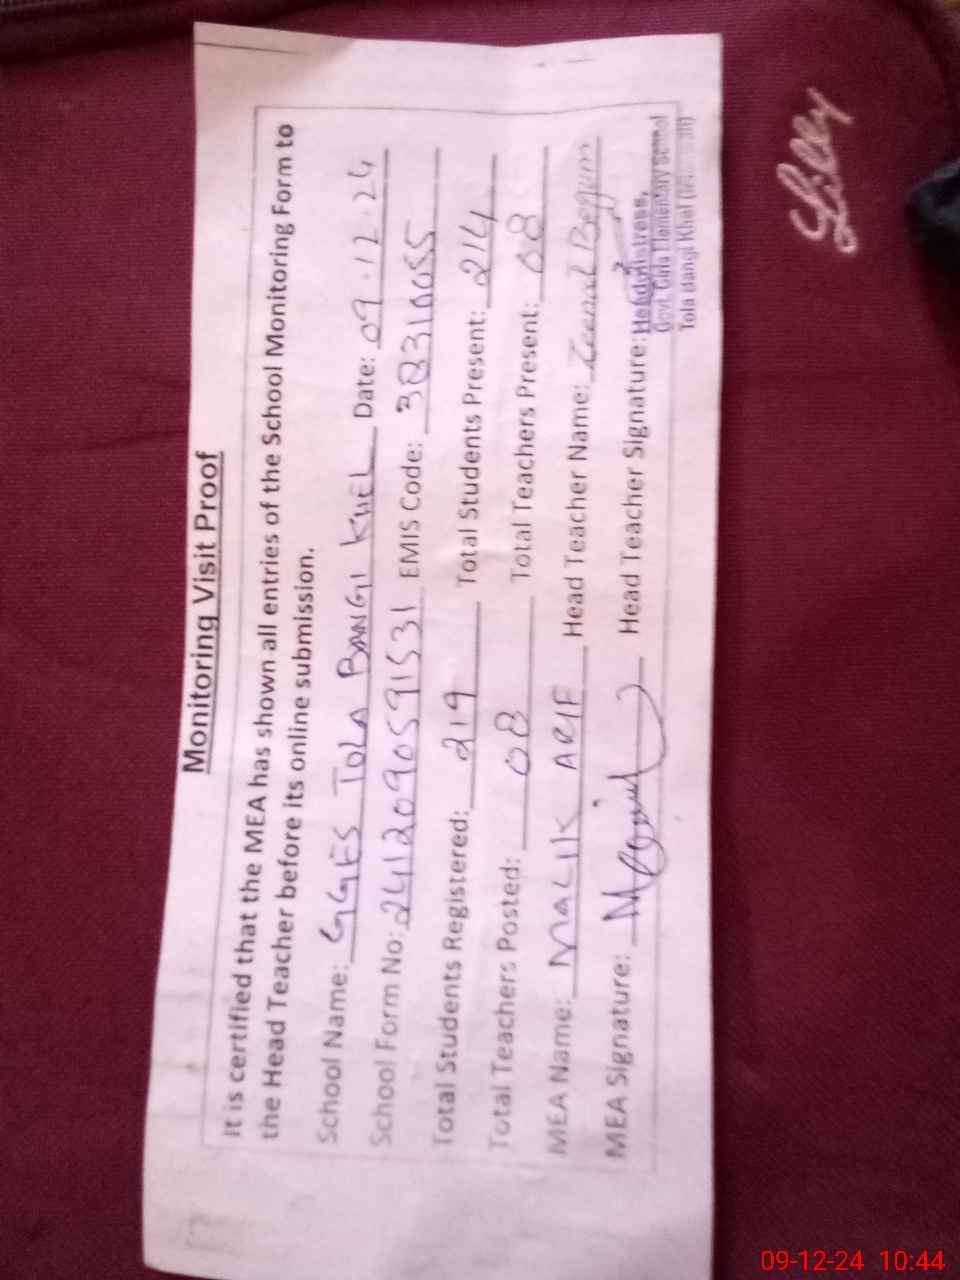 Monitoring Visit Proof
It is certified that the MEA has shown all entries of the School Monitoring Form to
the Head Teacher before its online submission.
School Name: GGES TOLA BANGI KHEL Date: 09.12.24
School Form No: 2412090591531 EMIS Code: 38310055
Total Students Registered: 219 Total Students Present: 214
Total Teachers Posted: 08 Total Teachers Present: 08
MEA Name: MALIK ARIF Head Teacher Name: Begum
MEA Signature: Head Teacher Signature: Headmistress,
Govt. Girls Elementary School
Tola Bangi Khel
Lilly
09-12-24 10:44